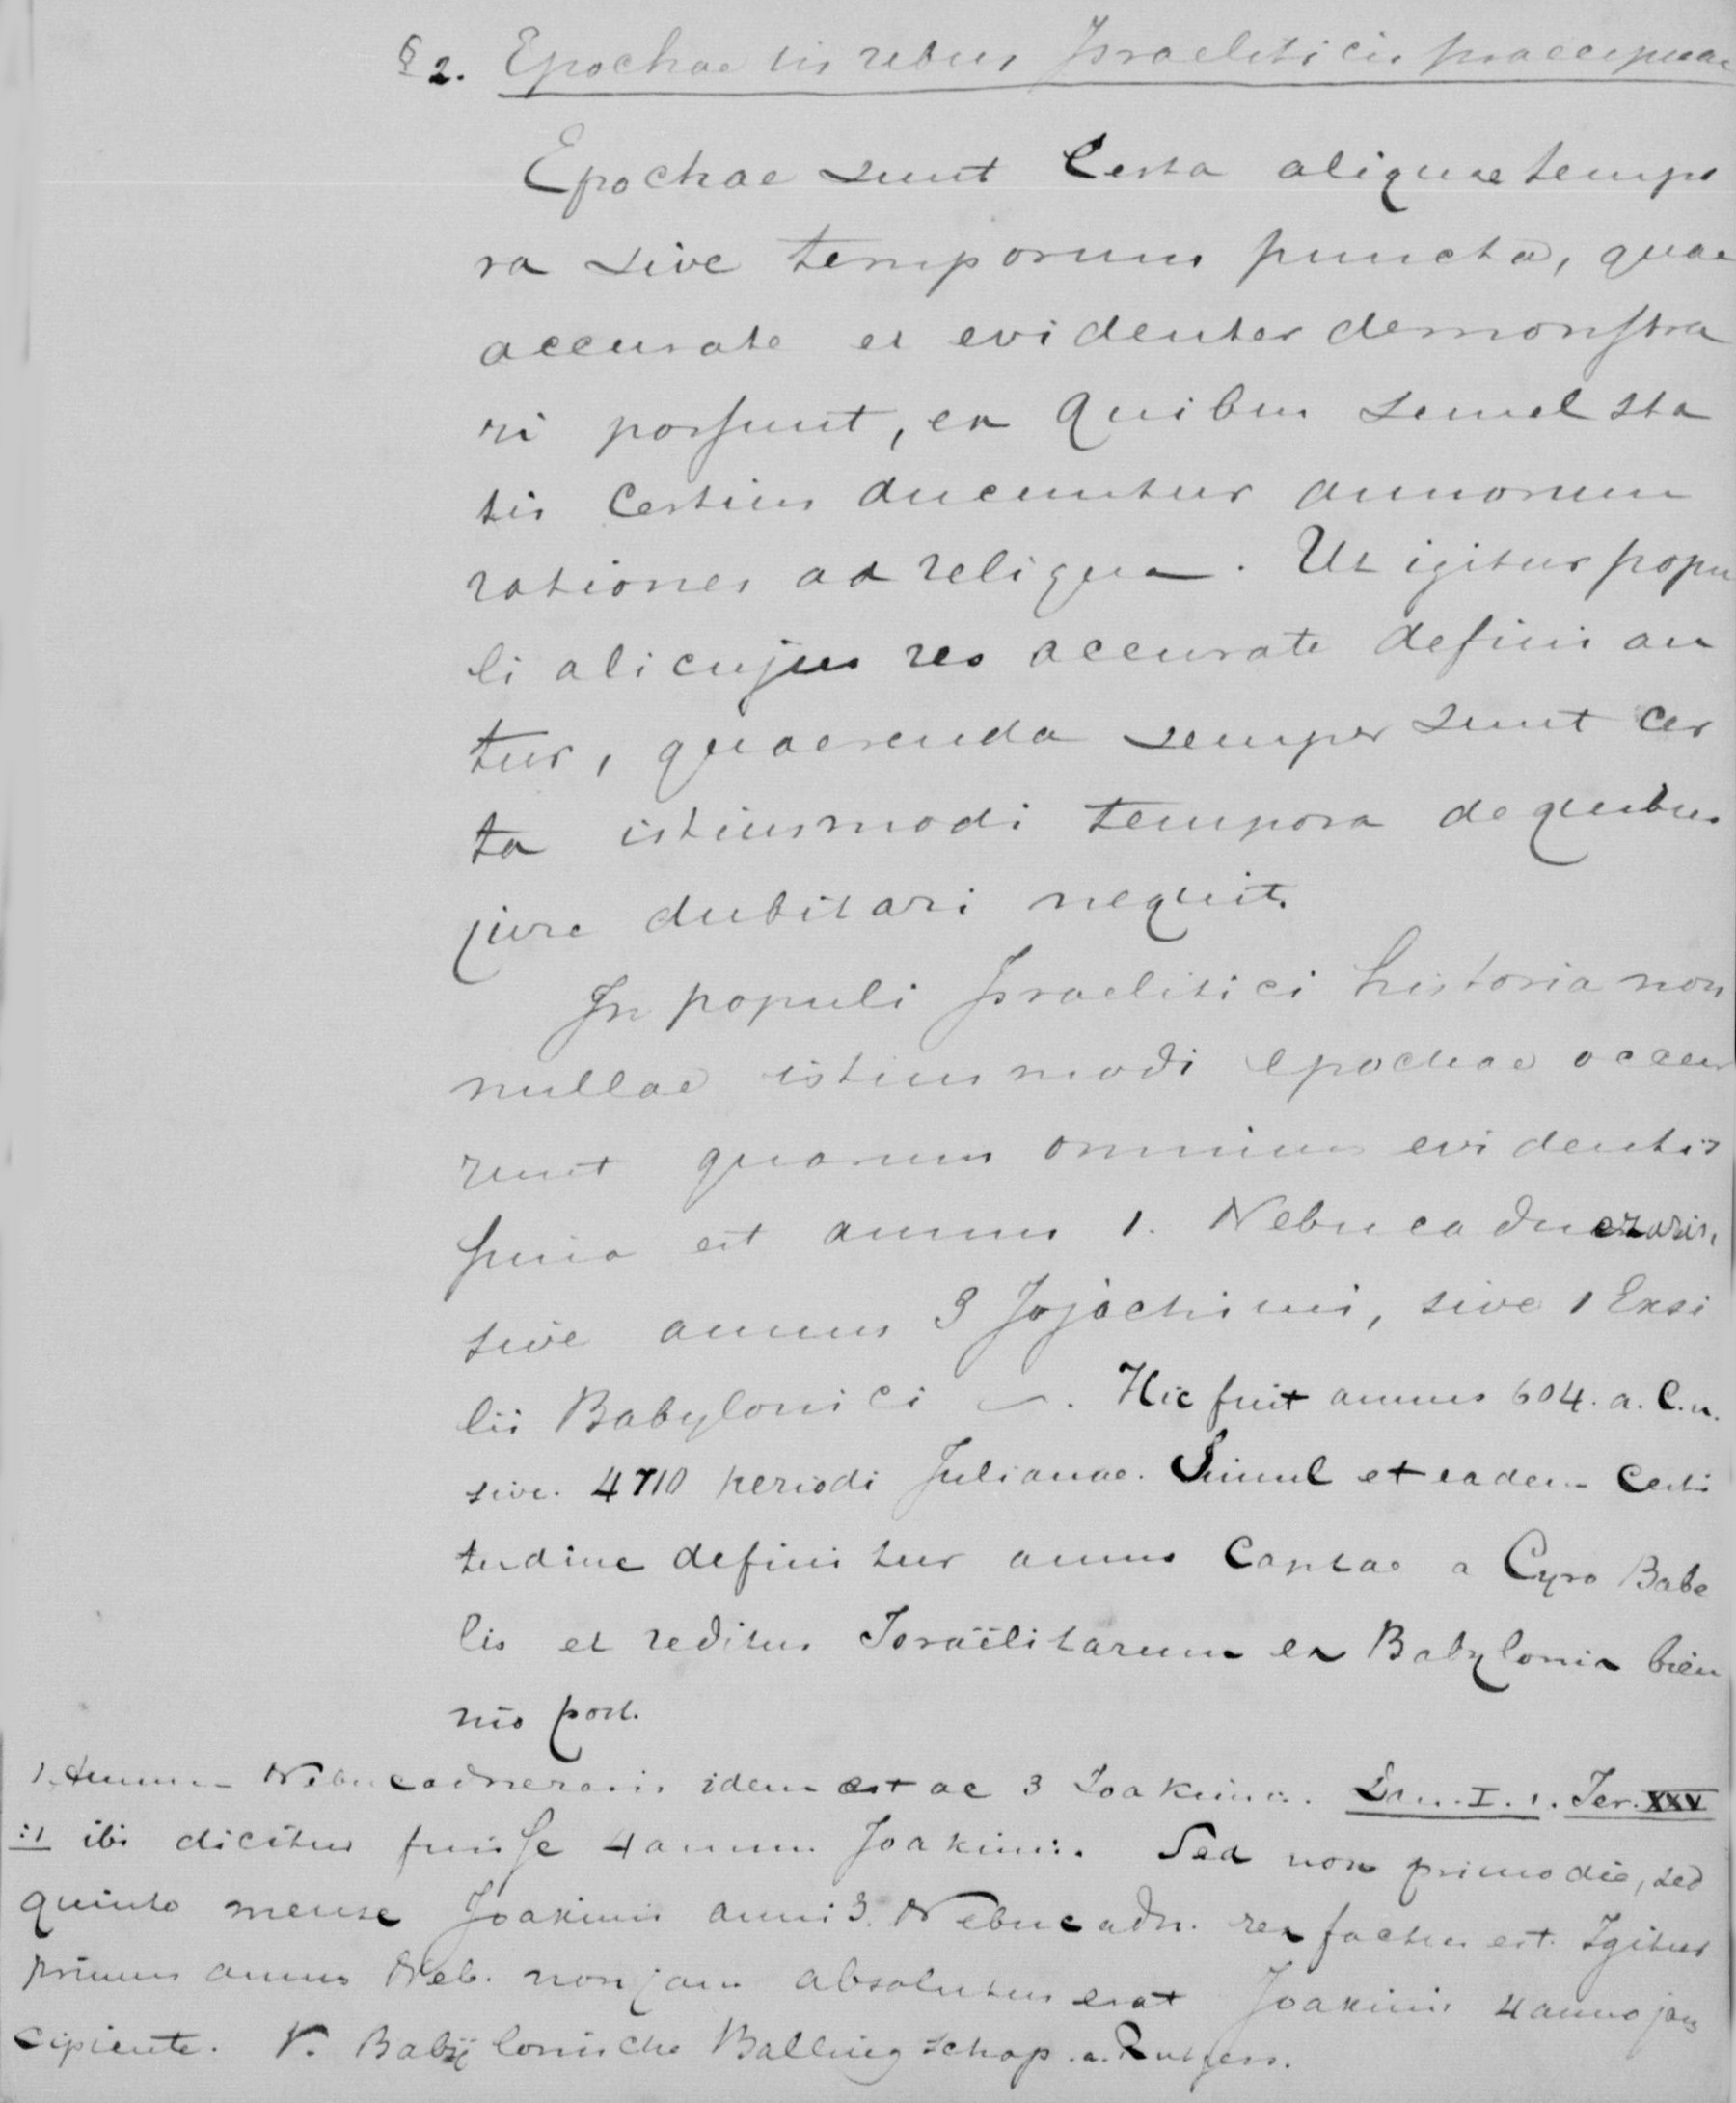 § 2. Epochae in rebus Israeliticis praecipuae
Epochae sunt Certa aliquae tempo
ra sive temporum puncta, quae
accurate et evidenter demonstra
ri possunt, ex quibus semel sta
tis certius ducuntur annorum
rationes ad reliqua. Ut igitur popu
li alicujus res accurate defini an
tur, quaerenda semper sunt cer
ta istiusmodi tempora de quibus
jure dubitari nequit.
In populi Israelitici historia non
nullae istiusmodi epochae occur
runt quarum omnium evidentis
sima est annus 1. Nebucadnezaris,
sive annus 3 Jojachimi, sive 1 Exsi
lii Babylonici. Hic fuit annus 604. a. C. n.
sive. 4710 periodi Julianae. Simul et eadem certi
tudine definitur annus captae a Cyro Babe
lis et reditus Israëlitarum ex Babylonia bien
nio post.
1. Annus Nebucadnezaris idem est ac 3 Joakimi. Dan. I. 1. Jer. XXV
:1 ibi dicitur fuisse 4 annus Joakimi. Sed non primo die, sed
quinto mense Joakimi anni 3. Nebucadn. rex factus est. Igitur
primus annus Neb. non jam absolutus erat Joakimi 4 anno jam
cipiente. V. Babylonische Ballingschap. a. Rutgers.